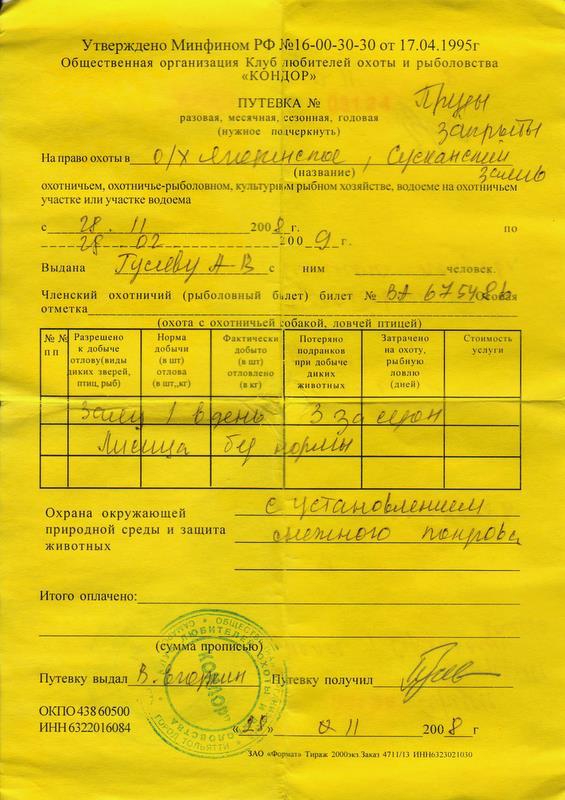 Утверждено Минфином РФ №16-00-30-30 от 17.04.1995г
Общественная организация Клуб любителей охоты и рыболовства
«КОНДОР»
ПУТЕВКА №
Пруды
закрыты
разовая, месячная, сезонная, годовая
(нужное подчеркнуть)
На право охоты в о/х Ягодинское, Сусканский
(название) залив
охотничьем, охотничье-рыболовном, культурном рыбном хозяйстве, водоеме на охотничьем
участке или участке водоема
с 28.11 2008г. по
28.02 2009г.
Выдана Гусеву А-В с ним человек.
Членский охотничий (рыболовный билет) билет № ВА 675486 Особая
отметка
(охота с охотничьей собакой, ловчей птицей)
№ № п п Разрешено к добыче отлову(виды диких зверей, птиц, рыб) Норма добычи (в шт) отлова (в шт,,кг) Фактически добыто (в шт) отловлено (в кг) Потеряно подранков при добыче диких животных Затрачено на охоту, рыбную ловлю (дней) Стоимость услуги
Заяц 1 в день 3 за сезон
Лисица без нормы
Охрана окружающей природной среды и защита животных
с установлением
снежного покрова
Итого оплачено:
(сумма прописью)
Путевку выдал В. Егоркин Путевку получил
ОКПО 438 60500
ИНН 6322016084 «28» 11 2008г
ЗАО «Формат» Тираж 2000экз.Заказ 4711/13 ИНН6323021030
КОНДОР
ГОРОД ТОЛЬЯТТИ